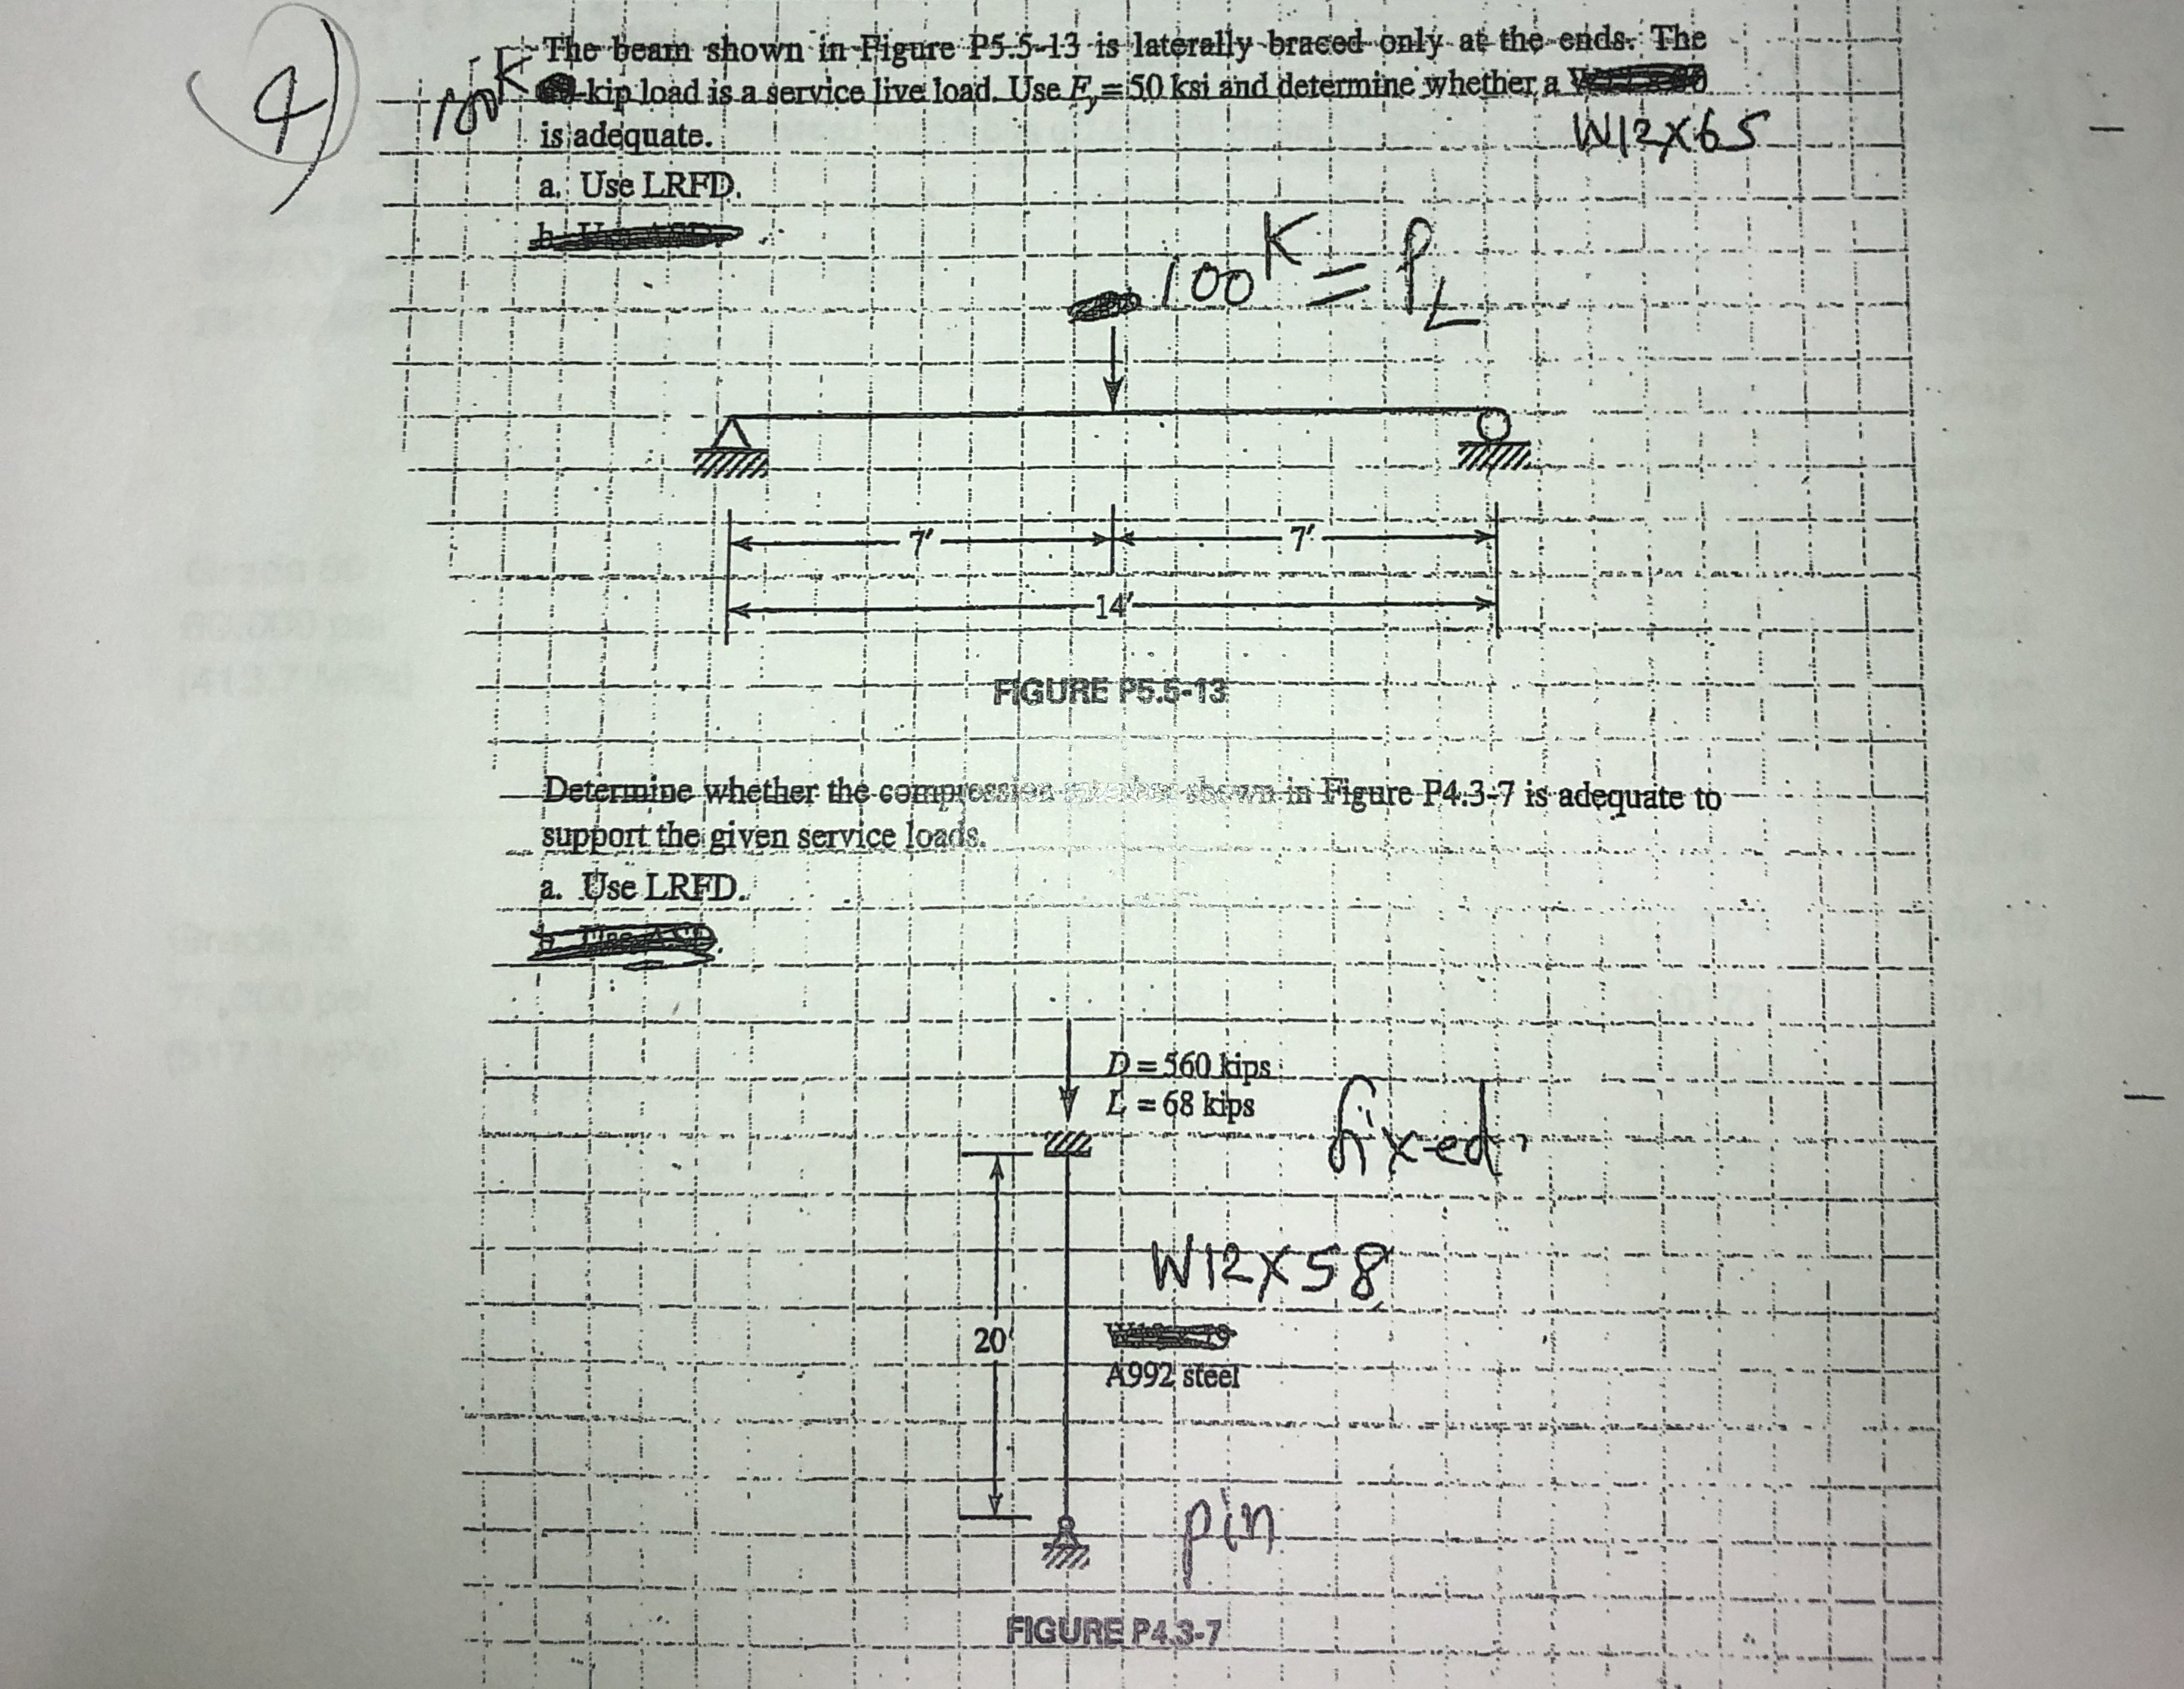 4)
The beam shown in Figure P5.5-13 is laterally braced only at the ends. The
100K -kip load is a service live load. Use Fy = 50 ksi and determine whether a
W12X65
is adequate.
a. Use LRFD.
100K = PL
7' 7'
14'
FIGURE P5.5-13
Determine whether the compression member shown in Figure P4.3-7 is adequate to
support the given service loads.
a. Use LRFD.
D = 560 kips
L = 68 kips
fixed
W12X58
20'
A992 steel
pin
FIGURE P4.3-7